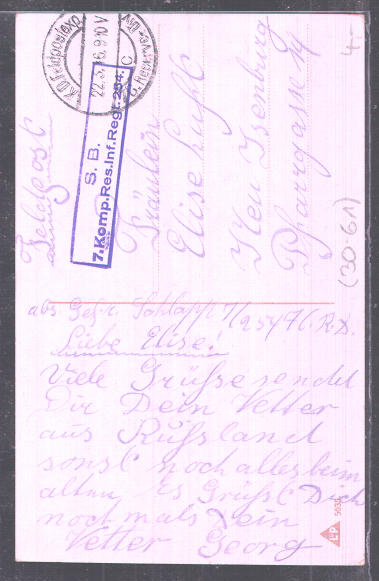 Feldpost
K.D. Feldpostexp.
22.3.16. 9-10 V
S. B.
7. Komp. Res. Inf. Regt. 254.
Fräulein
Elise Luft
Neu Isenburg
Pfarrgasse 14
4.-
(30.61)
abs. Gefr. Schlapp 7/254 76. R.D.
Liebe Elise!
Viele Grüsse sendet
Dir Dein Vetter
aus Russland
sonst noch alles beim
alten, Es Grüsst Dich
nochmals Dein
Vetter Georg
LP